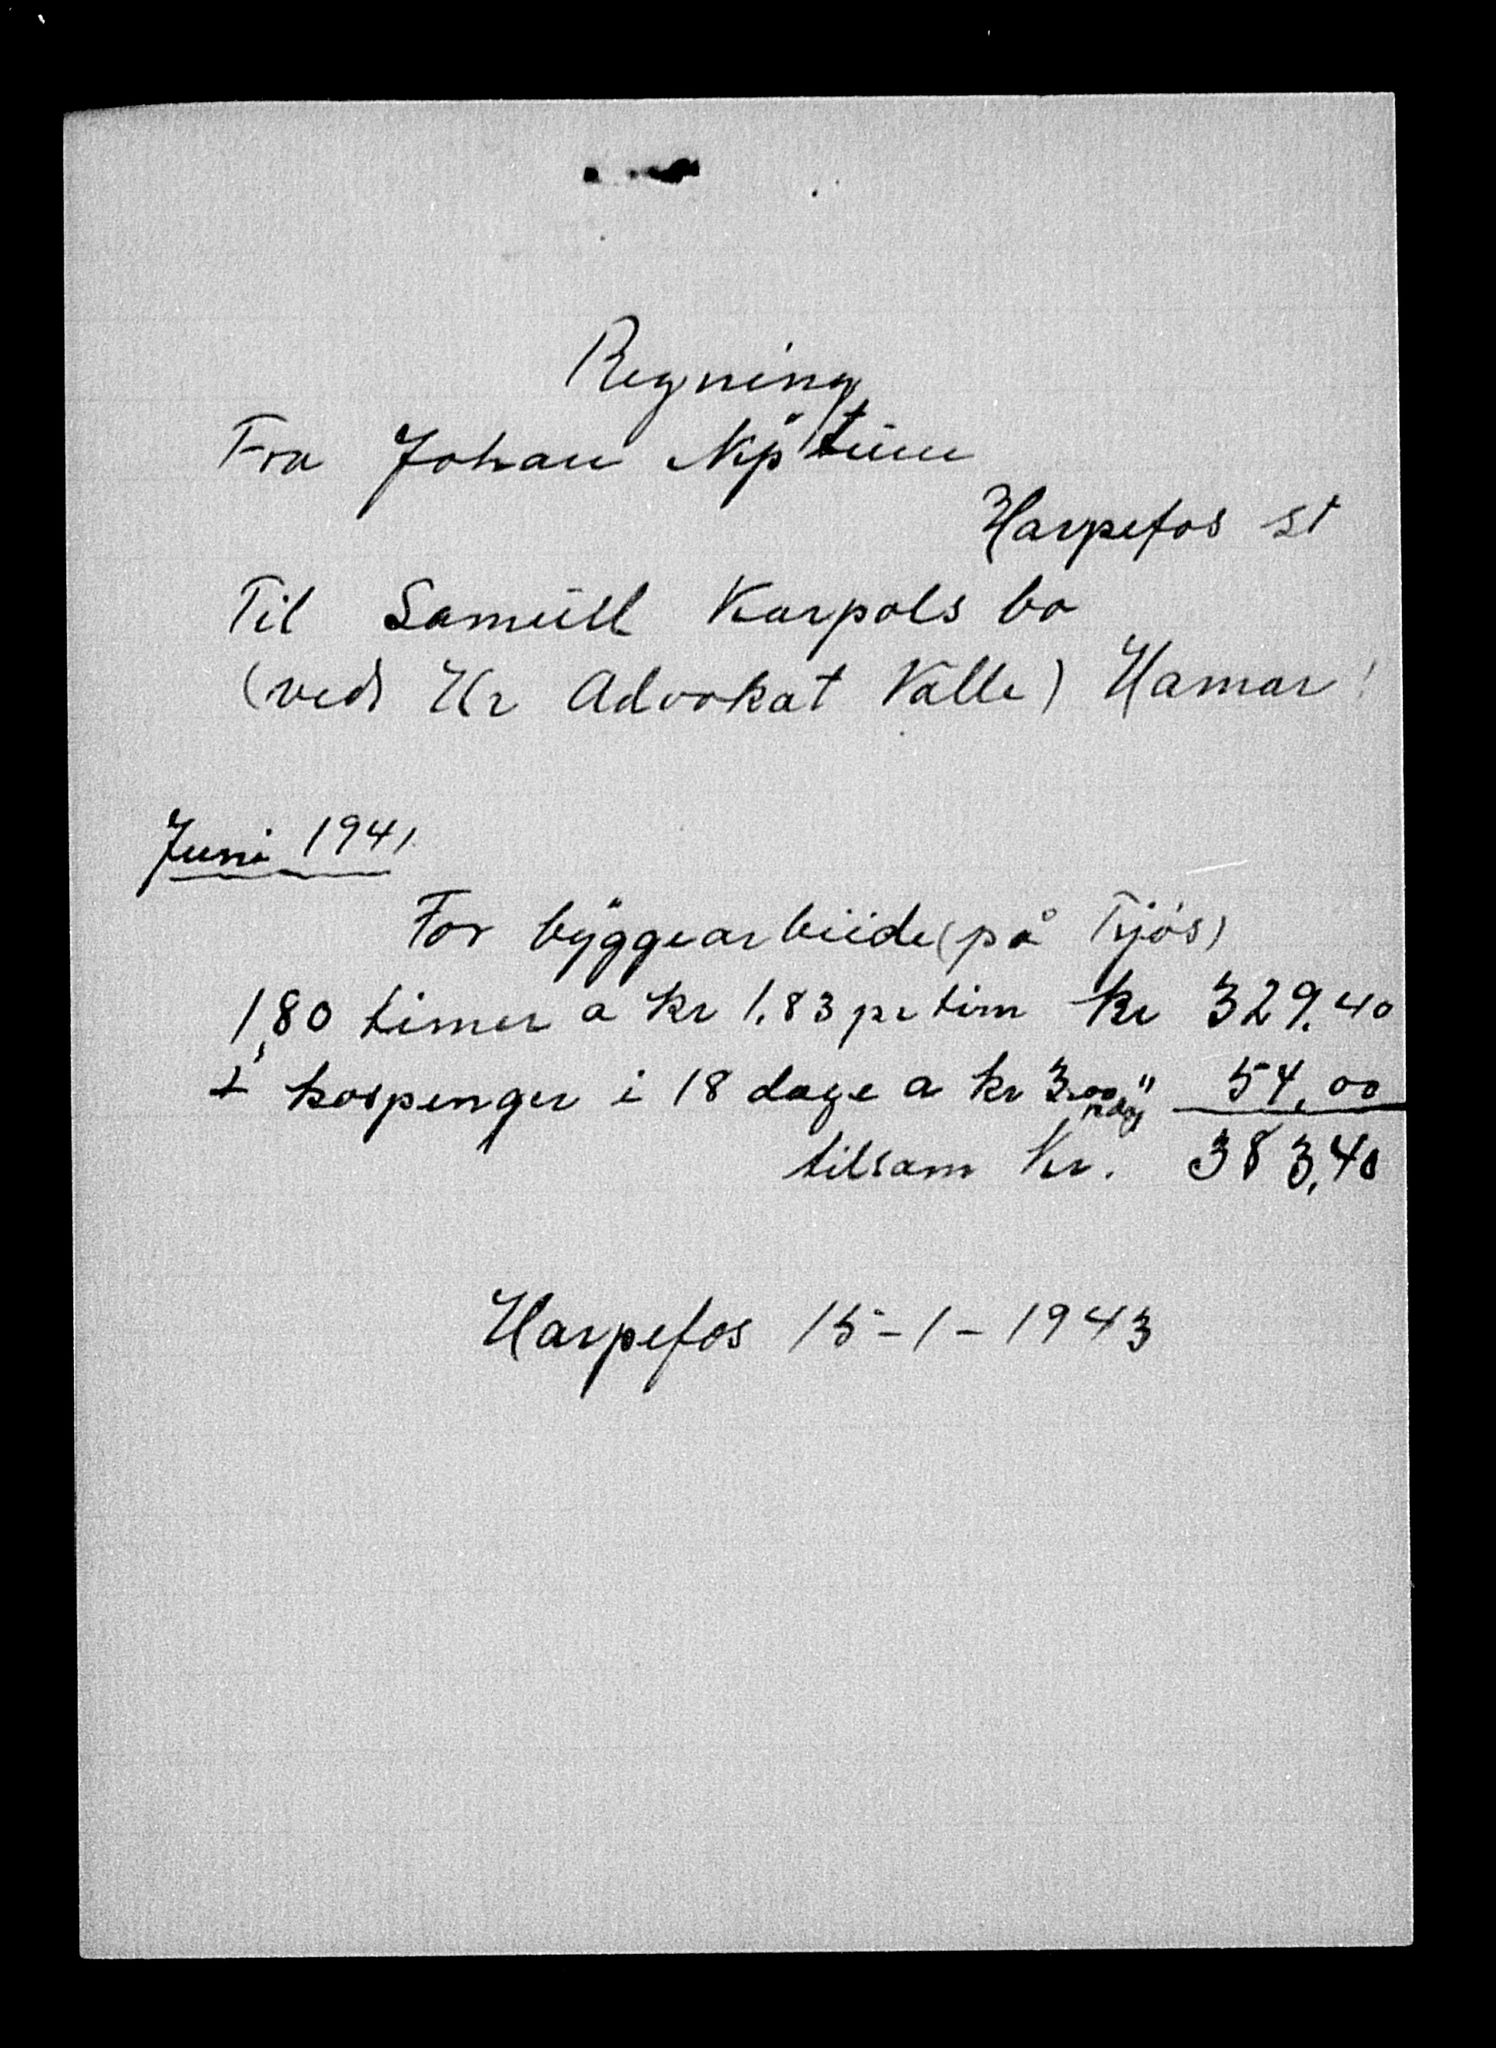 Regning
Fra Johan Nÿstüen
Harpefos st
Til Samüel Karpols bo
(ved Hr Advokat Valle) Hamar!
Juni 1941
For bÿggearbeide (på Tjøs)
180 timer a kr 1.83 pr tim kr 329.40
+ kospenger i 18 dage a kr 3.00 pr dag " 54,00
tilsam kr. 383,40
Harpefos 15-1-1943